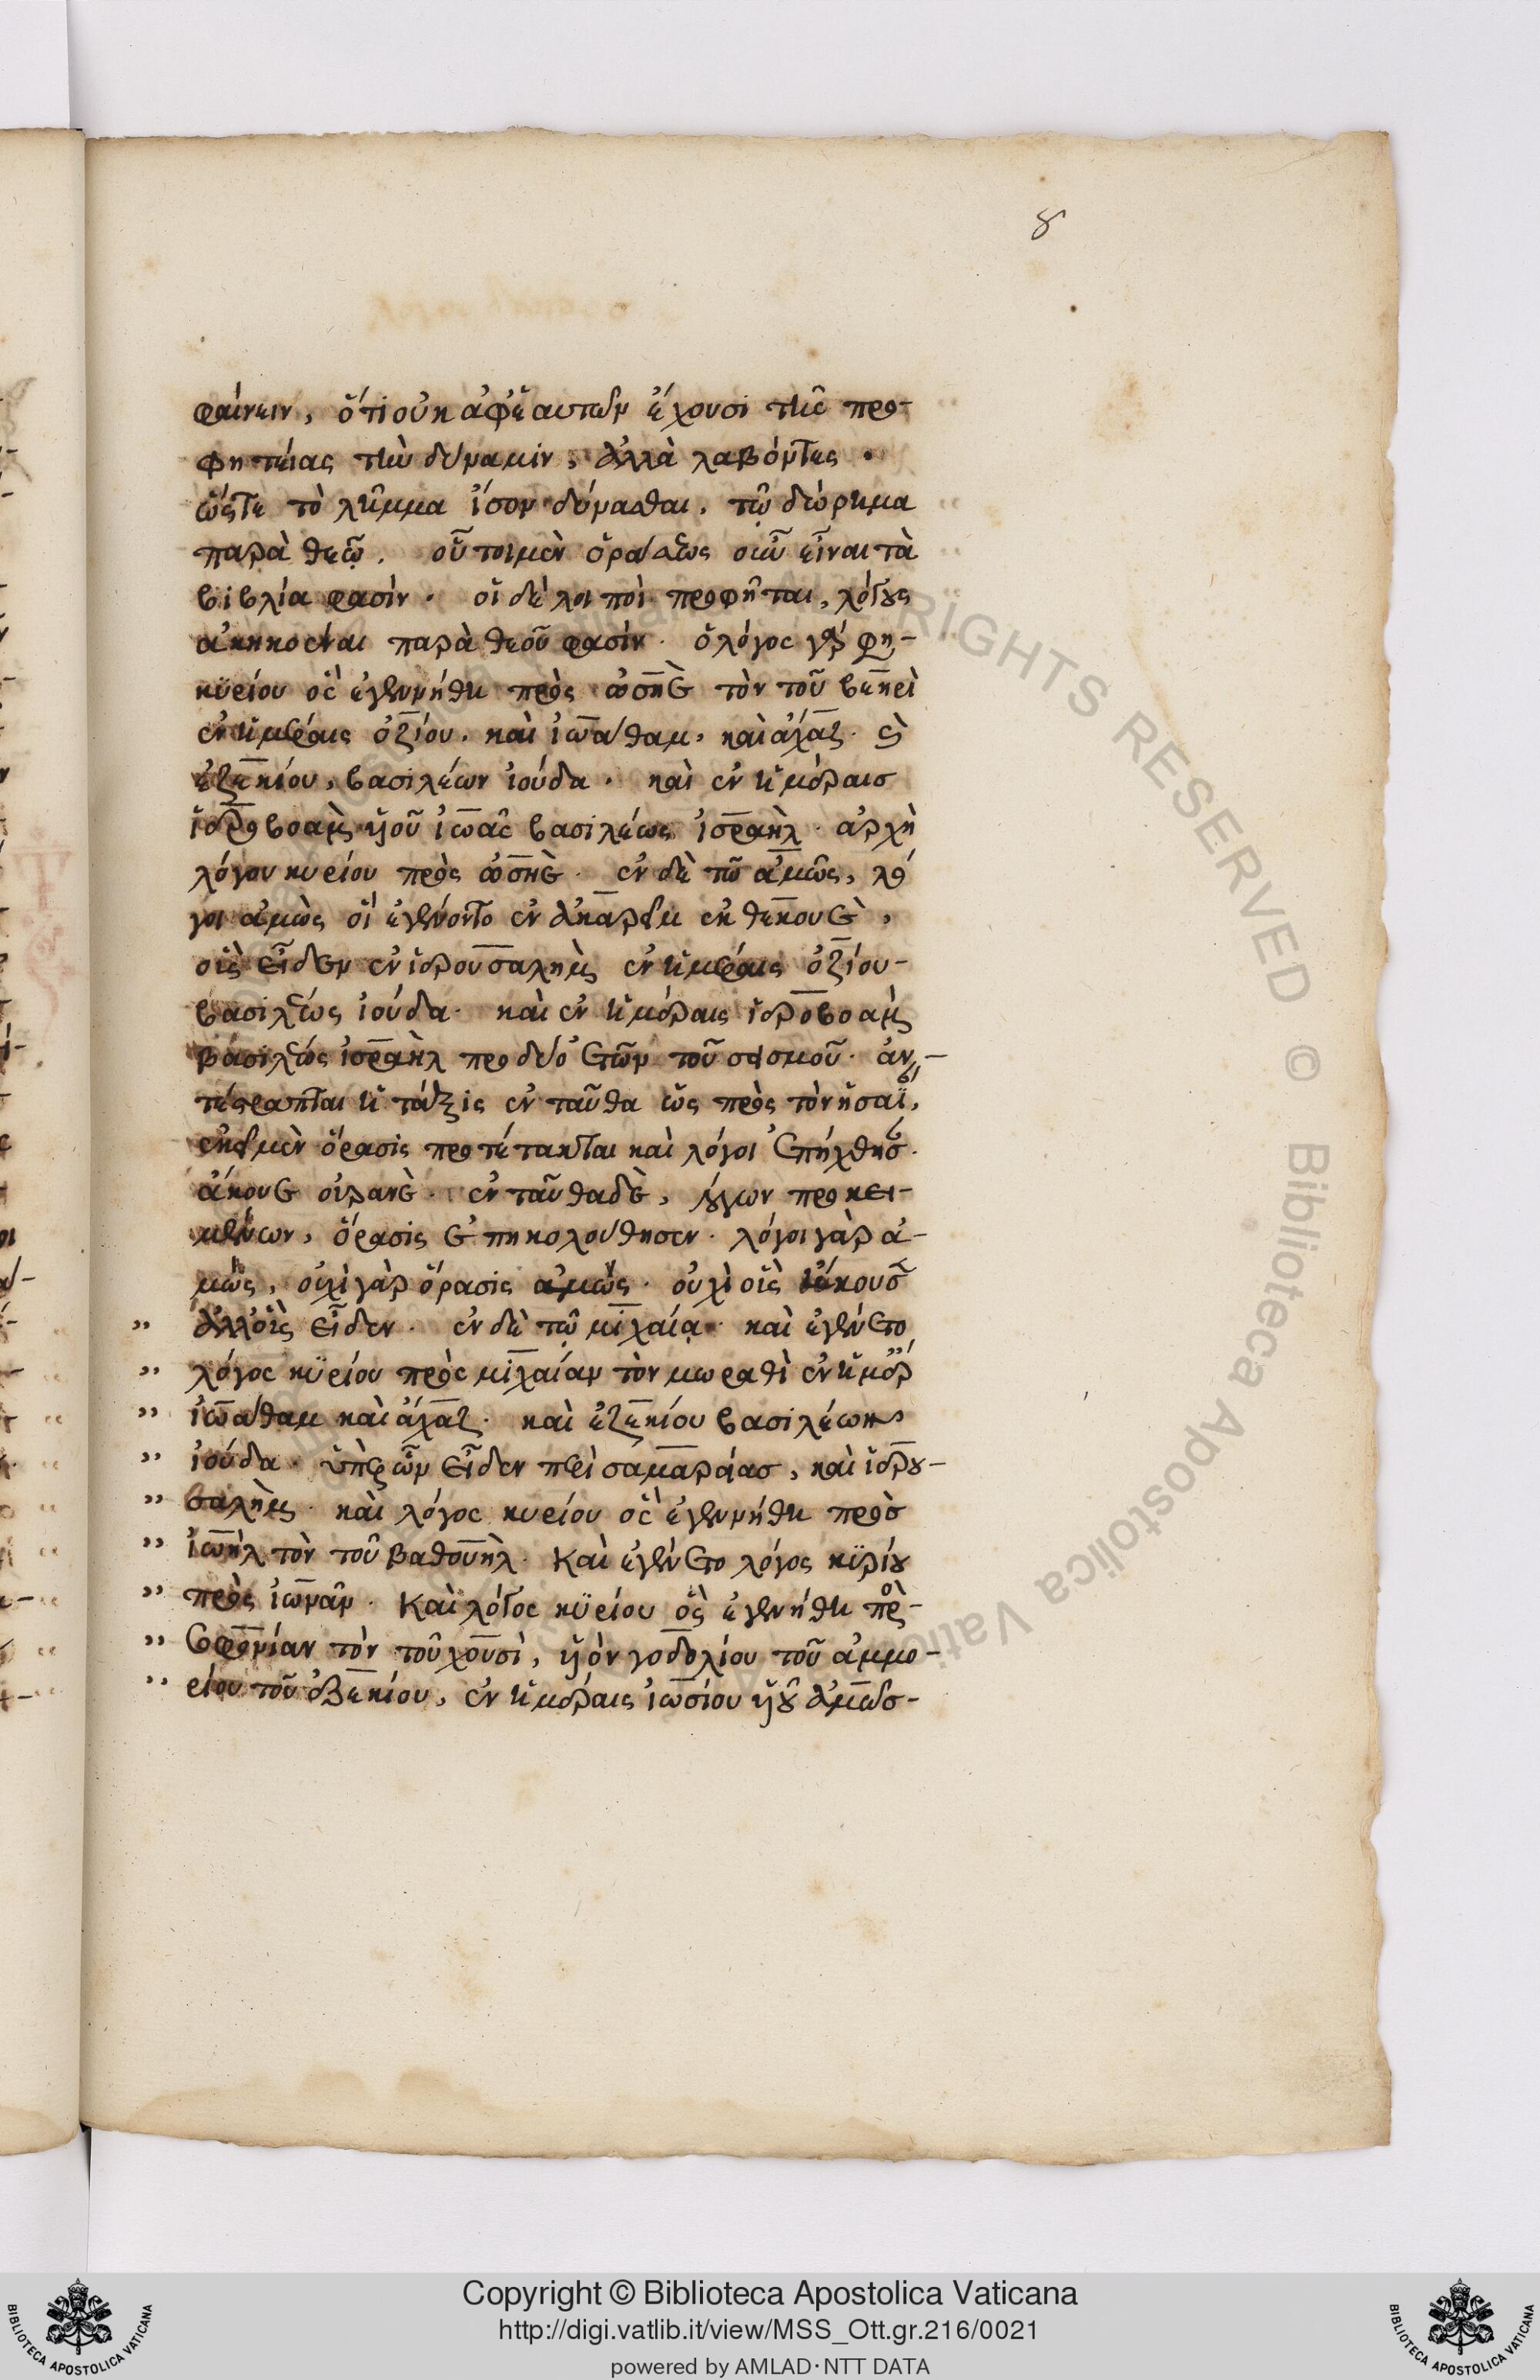 8
φαίνειν, ὅτι οὐκ ἀφ' ἑαυτῶν ἔχουσι τῆς προ-
φητείας τὴν δύναμιν, ἀλλὰ λαβόντες.
ὥστε τὸ λῆμμα ἴσον δύνασθαι, τῷ δώρημα
παρὰ θεῷ. οὗτοι μὲν ὁράσεως οὖν εἶναι τὰ
βιβλία φασίν. οἱ δὲ λοιποὶ προφῆται, λόγους
ἀκηκοέναι παρὰ θεοῦ φασίν. ὁ λόγος γάρ φη-
κυρίου ὃς ἐγενήθη πρὸς ὠσηὲ τὸν τοῦ βεηρὶ
ἐν ἡμέραις ὀζίου, καὶ ἰωάθαμ, καὶ ἄχαζ. καὶ
ἐζεκίου, βασιλέων ἰούδα. καὶ ἐν ἡμέραισ
ἱεροβοὰμ υἱοῦ ἰωὰς βασιλέως ἰσραήλ. ἀρχὴ
λόγου κυρίου πρὸς ὠσηὲ. ἐν δὲ τῷ ἀμὼς, λό
γοι ἀμὼς οἳ ἐγένοντο ἐν ἀκαρεὶμ ἐκ θεκουὲ,
οἷς εἶδεν ἐν ἱερουσαλὴμ ἐν ἡμέραις ὀζίου-
βασιλέως ἰούδα. καὶ ἐν ἡμέραις ἱεροβοὰμ
βασιλέως ἰσραὴλ προ δύο ἐτῶν τοῦ σεισμοῦ. ἀν-
τέστραπται ἡ τάξις ἐνταῦθα ὡς πρὸς τὸν ἡσαΐ,
ἐκεῖ μὲν ὅρασις προτέτακται καὶ λόγοι ἐπήχθησ.
ἄκουε οὐρανὲ. ἐνταῦθα δὲ, λόγων προκει-
μένων, ὅρασις ἐπηκολούθησεν. λόγοι γὰρ ἀ-
μὼς, οὐχὶ γὰρ ὅρασις ἀμὼς. οὐχὶ οἷς ἤκουσ
ἀλλ' οἷς εἶδεν. ἐν δὲ τῷ μιχαίᾳ. καὶ ἐγένετο
λόγος κυρίου πρὸς μιχαίαν τὸν μωραθὶ ἐν ἡμέρ
ἰωάθαμ καὶ ἄχαζ. καὶ ἐζεκίου βασιλέων
ἰούδα. ὑπὲρ ὧν εἶδεν περὶ σαμαρείασ, καὶ ἱερου-
σαλὴμ. καὶ λόγος κυρίου ὃς ἐγενήθη πρὸσ
ἰωὴλ τὸν τοῦ βαθουήλ. Καὶ ἐγένετο λόγος κυρίου
πρὸς ἰωνᾶν. Καὶ λόγος κυρίου ὃς ἐγενήθη πρὸς-
σοφονίαν τὸν τοῦ χουσὶ, υἱὸν γοδολίου τοῦ ἀμμο-
ρίου τοῦ ἐζεκίου, ἐν ἡμέραις ἰωσίου υἱοῦ ἀμὼσ-
ALL RIGHTS RESERVED © Biblioteca Apostolica Vaticana
Copyright © Biblioteca Apostolica Vaticana
http://digi.vatlib.it/view/MSS_Ott.gr.216/0021
powered by AMLAD·NTT DATA
BIBLIOTECA APOSTOLICA VATICANA
BIBLIOTECA APOSTOLICA VATICANA